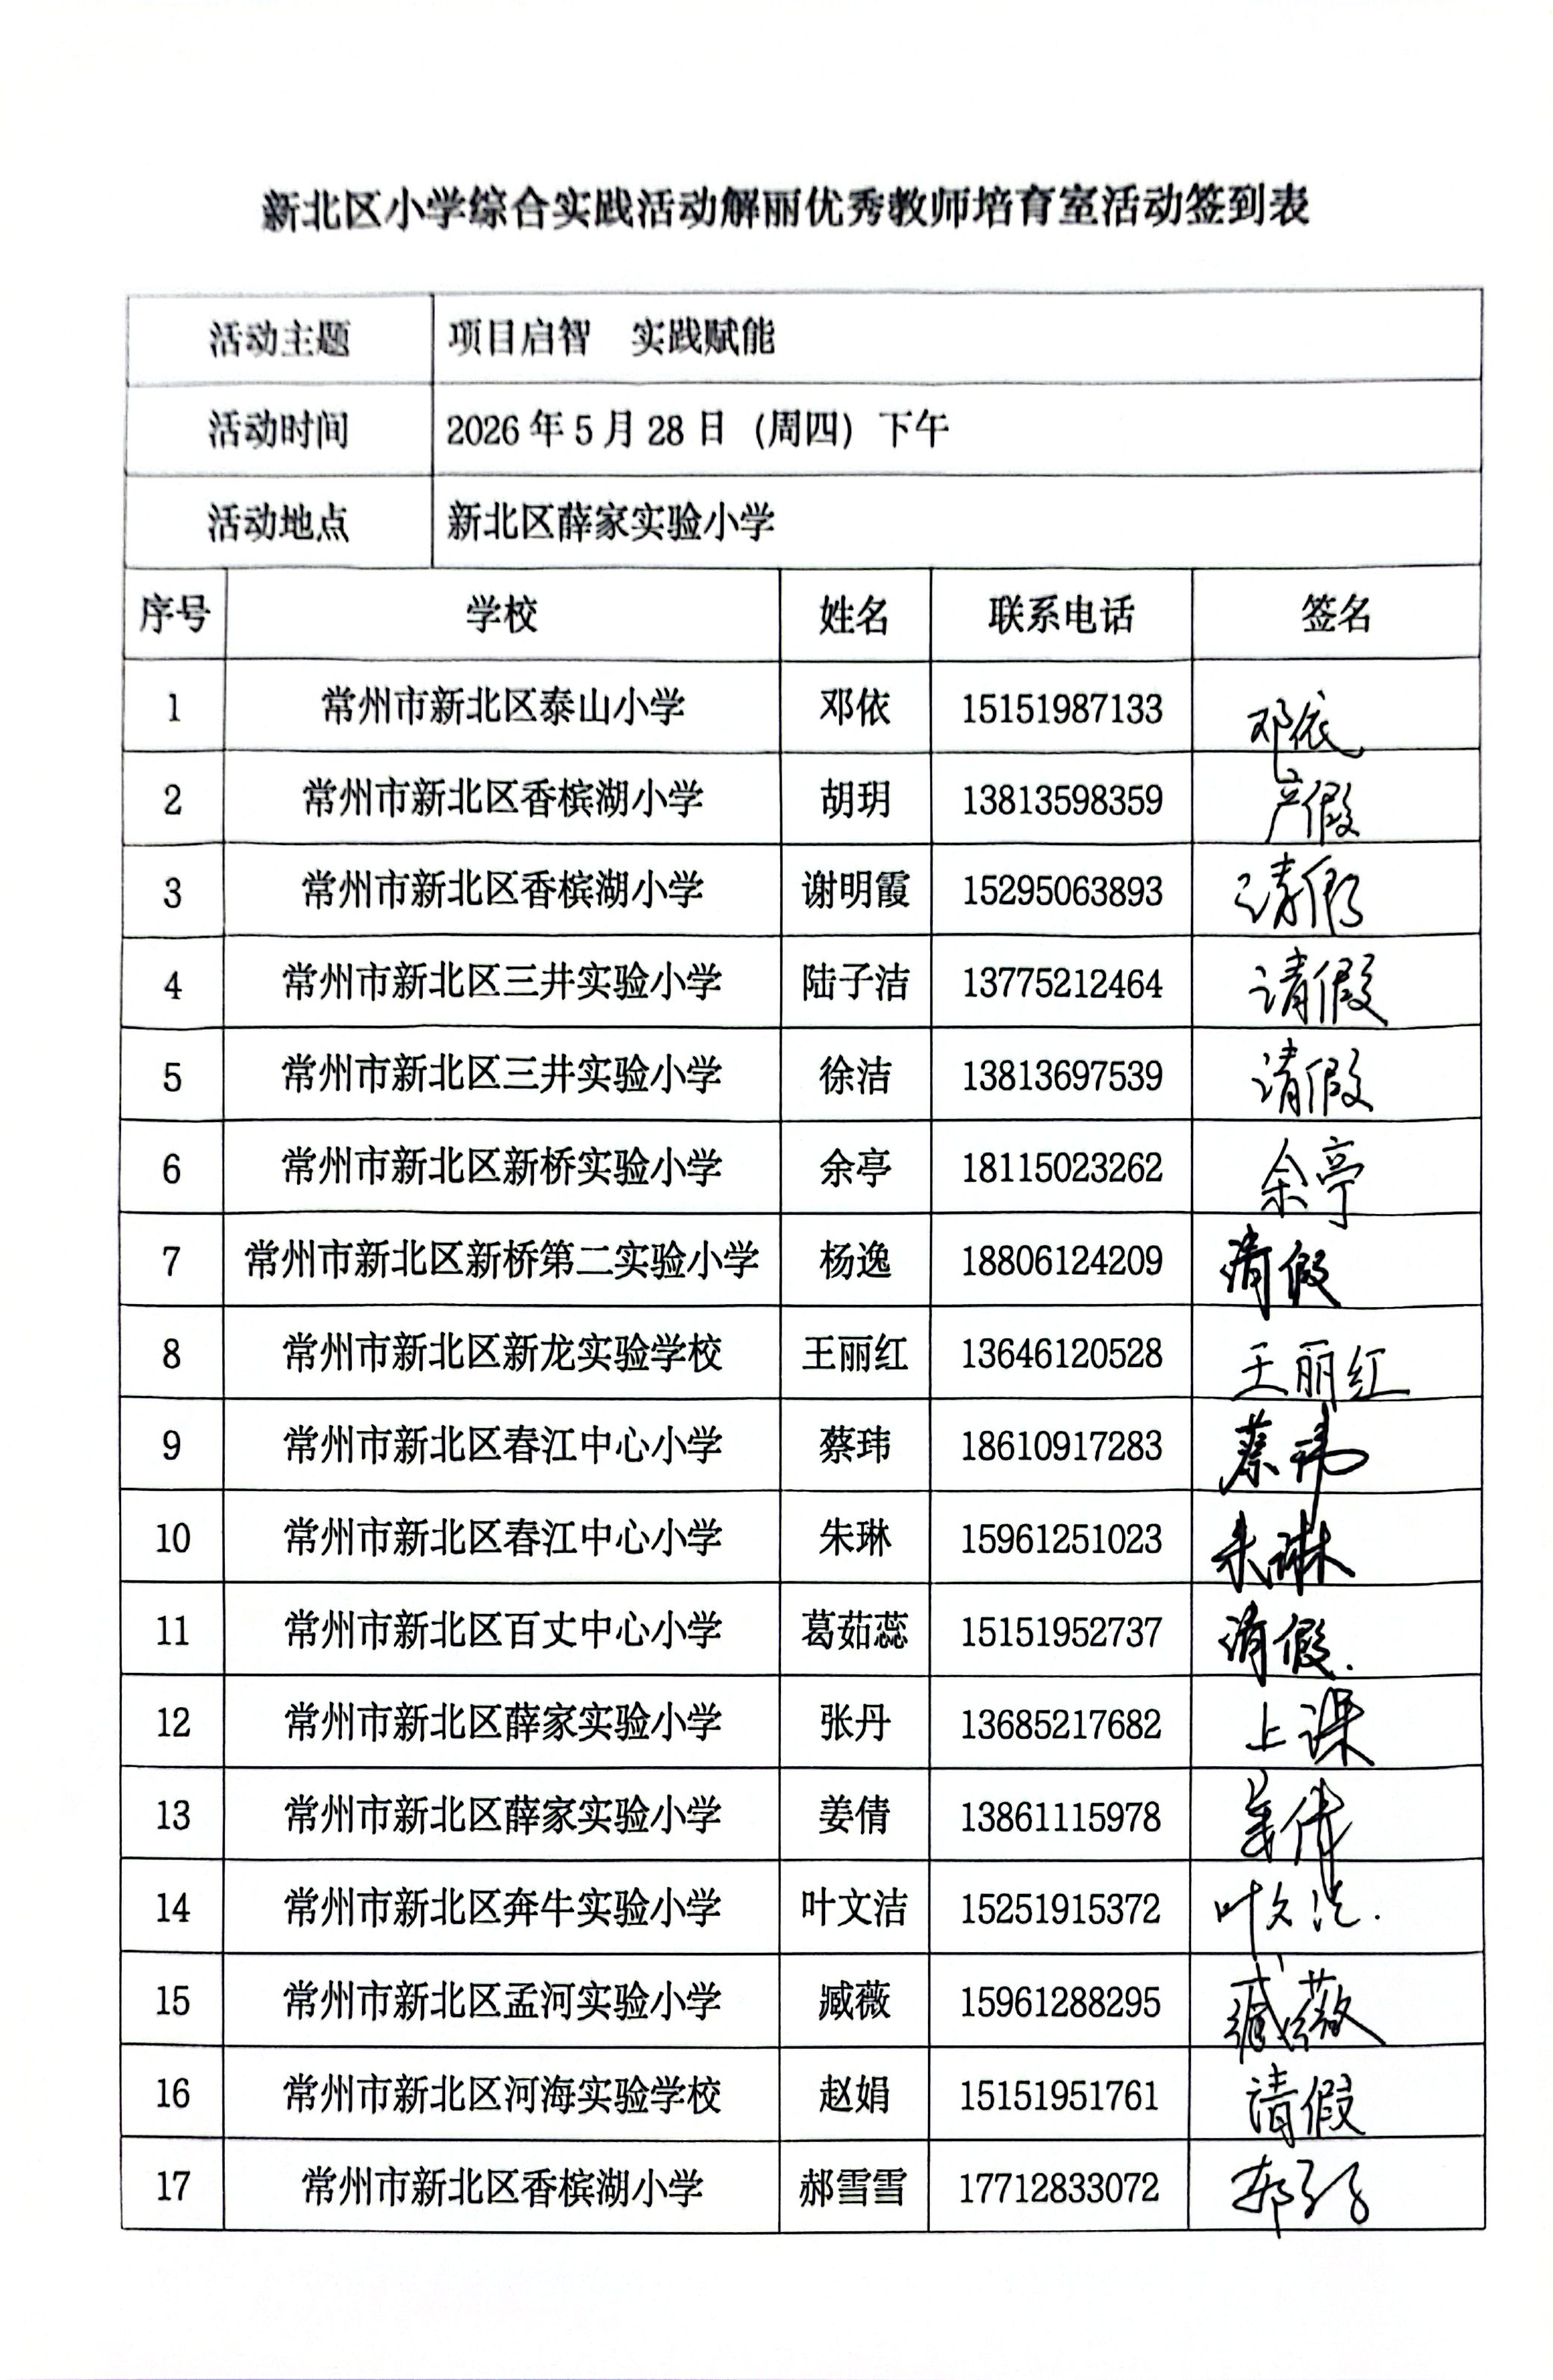 新北区小学综合实践活动解丽优秀教师培育室活动签到表
活动主题 项目启智 实践赋能
活动时间 2026 年 5 月 28 日（周四）下午
活动地点 新北区薛家实验小学
序号 学校 姓名 联系电话 签名
1 常州市新北区泰山小学 邓依 15151987133 邓依
2 常州市新北区香槟湖小学 胡玥 13813598359 产假
3 常州市新北区香槟湖小学 谢明霞 15295063893 请假
4 常州市新北区三井实验小学 陆子洁 13775212464 请假
5 常州市新北区三井实验小学 徐洁 13813697539 请假
6 常州市新北区新桥实验小学 余亭 18115023262 余亭
7 常州市新北区新桥第二实验小学 杨逸 18806124209 请假
8 常州市新北区新龙实验学校 王丽红 13646120528 王丽红
9 常州市新北区春江中心小学 蔡玮 18610917283 蔡玮
10 常州市新北区春江中心小学 朱琳 15961251023 朱琳
11 常州市新北区百丈中心小学 葛茹蕊 15151952737 请假.
12 常州市新北区薛家实验小学 张丹 13685217682 上课
13 常州市新北区薛家实验小学 姜倩 13861115978 姜倩
14 常州市新北区奔牛实验小学 叶文洁 15251915372 叶文洁.
15 常州市新北区孟河实验小学 臧薇 15961288295 臧薇
16 常州市新北区河海实验学校 赵娟 15151951761 请假
17 常州市新北区香槟湖小学 郝雪雪 17712833072 郝雪雪